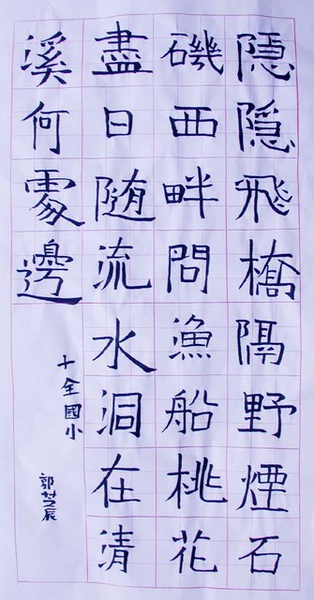 隱隱飛橋隔野煙石
磯西畔問漁船桃花
盡日随流水洞在清
溪何處邊
十全國小
郭芝辰